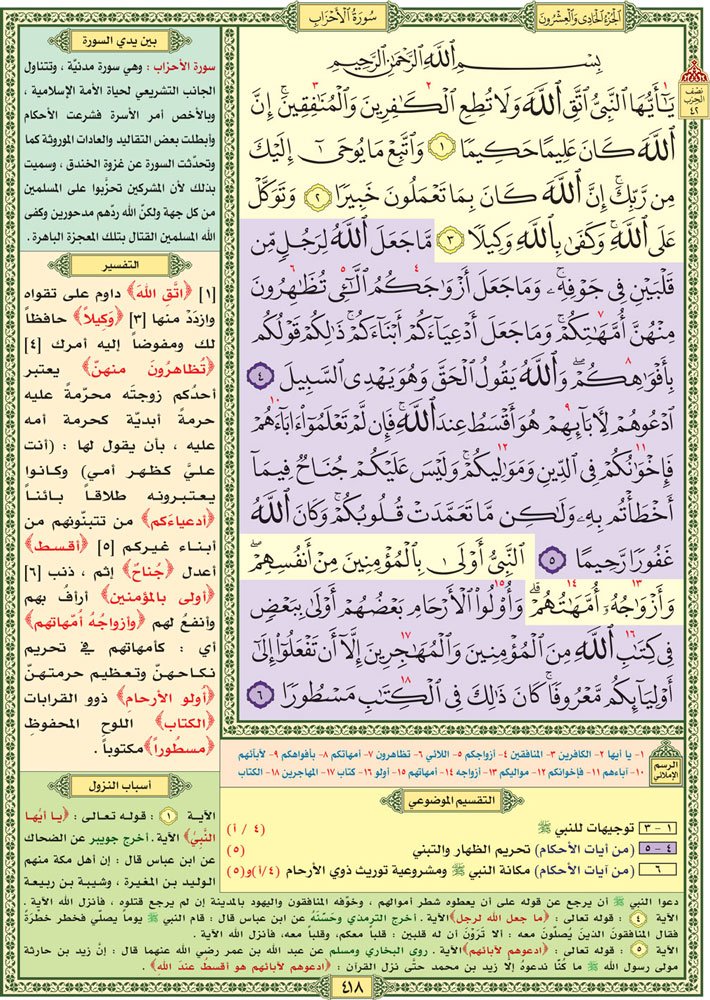 الجزء الحادى والعشرون
سورة الأحزاب
نصف الحزب ٤٢
بِسْمِ ٱللَّهِ ٱلرَّحْمَٰنِ ٱلرَّحِيمِ
يَٰٓأَيُّهَا ٱلنَّبِىُّ ٱتَّقِ ٱللَّهَ وَلَا تُطِعِ ٱلْكَٰفِرِينَ وَٱلْمُنَٰفِقِينَ ۗ إِنَّ
ٱللَّهَ كَانَ عَلِيمًا حَكِيمًا ١ وَٱتَّبِعْ مَا يُوحَىٰٓ إِلَيْكَ
مِن رَّبِّكَ ۚ إِنَّ ٱللَّهَ كَانَ بِمَا تَعْمَلُونَ خَبِيرًا ٢ وَتَوَكَّلْ
عَلَى ٱللَّهِ ۚ وَكَفَىٰ بِٱللَّهِ وَكِيلًا ٣ مَّا جَعَلَ ٱللَّهُ لِرَجُلٍ مِّن
قَلْبَيْنِ فِى جَوْفِهِۦ ۚ وَمَا جَعَلَ أَزْوَٰجَكُمُ ٱلَّٰٓـِٔى تُظَٰهِرُونَ
مِنْهُنَّ أُمَّهَٰتِكُمْ ۚ وَمَا جَعَلَ أَدْعِيَآءَكُمْ أَبْنَآءَكُمْ ۚ ذَٰلِكُمْ قَوْلُكُم
بِأَفْوَٰهِكُمْ ۖ وَٱللَّهُ يَقُولُ ٱلْحَقَّ وَهُوَ يَهْدِى ٱلسَّبِيلَ ٤
ٱدْعُوهُمْ لِءَابَآئِهِمْ هُوَ أَقْسَطُ عِندَ ٱللَّهِ ۚ فَإِن لَّمْ تَعْلَمُوٓا۟ ءَابَآءَهُمْ
فَإِخْوَٰنُكُمْ فِى ٱلدِّينِ وَمَوَٰلِيكُمْ ۚ وَلَيْسَ عَلَيْكُمْ جُنَاحٌ فِيمَآ
أَخْطَأْتُم بِهِۦ وَلَٰكِن مَّا تَعَمَّدَتْ قُلُوبُكُمْ ۚ وَكَانَ ٱللَّهُ
غَفُورًا رَّحِيمًا ٥ ٱلنَّبِىُّ أَوْلَىٰ بِٱلْمُؤْمِنِينَ مِنْ أَنفُسِهِمْ ۖ
وَأَزْوَٰجُهُۥٓ أُمَّهَٰتُهُمْ ۗ وَأُو۟لُوا۟ ٱلْأَرْحَامِ بَعْضُهُمْ أَوْلَىٰ بِبَعْضٍ
فِى كِتَٰبِ ٱللَّهِ مِنَ ٱلْمُؤْمِنِينَ وَٱلْمُهَٰجِرِينَ إِلَّآ أَن تَفْعَلُوٓا۟ إِلَىٰٓ
أَوْلِيَآئِكُم مَّعْرُوفًا ۚ كَانَ ذَٰلِكَ فِى ٱلْكِتَٰبِ مَسْطُورًا ٦
الرسم الإملائي
١- يا أيها ٢- الكافرين ٣- المنافقين ٤- أزواجكم ٥- اللائي ٦- تظاهرون ٧- أمهاتكم ٨- بأفواهكم ٩- لآبائهم
١٠- آباءهم ١١- فإخوانكم ١٢- مواليكم ١٣- أزواجه ١٤- أمهاتهم ١٥- أولو ١٦- كتاب ١٧- المهاجرين ١٨- الكتاب
التقسيم الموضوعي
١ - ٣ توجيهات للنبي ﷺ (٤ / أ)
٤ - ٥ (من آيات الأحكام) تحريم الظهار والتبني (٥)
٦ (من آيات الأحكام) مكانة النبي ﷺ ومشروعية توريث ذوي الأرحام (٤/أ)و(٥)
بين يدي السورة
سورة الأحزاب : وهي سورة مدنيّة ، وتتناول
الجانب التشريعي لحياة الأمة الإسلامية ،
وبالأخص أمر الأسرة فشرعت الأحكام
وأبطلت بعض التقاليد والعادات الموروثة كما
وتحدّثت السورة عن غزوة الخندق ، وسميت
بذلك لأن المشركين تحزّبوا على المسلمين
من كل جهة ولكنّ الله ردّهم مدحورين وكفى
الله المسلمين القتال بتلك المعجزة الباهرة .
التفسير
[١] ﴿اتَّقِ اللهَ﴾ داوم على تقواه
وازددْ منها [٣] ﴿وَكيلاً﴾ حافظاً
لك ومفوضاً إليه أمرك [٤]
﴿تُظاهرُونَ منهنّ﴾ يعتبر
أحدُكم زوجتَه محرّمةً عليه
حرمةً أبديّة كحرمة أمه
عليه ، بأن يقول لها : (أنت
عليَّ كظهر أمي) وكانوا
يعتبرونه طلاقاً بائناً
﴿أدعياءَكم﴾ من تتبنّونهم من
أبناء غيركم [٥] ﴿أقسط﴾
أعدل ﴿جُناحٌ﴾ إثم ، ذنب [٦]
﴿أولى بالمؤمنين﴾ أرأفُ بهم
وأنفعُ لهم ﴿وأزواجُهُ أمّهاتهم﴾
أي : كأمهاتهم في تحريم
نكاحهنّ وتعظيم حرمتهنّ
﴿أولو الأرحام﴾ ذوو القرابات
﴿الكتاب﴾ اللوح المحفوظِ
﴿مسطُوراً﴾ مكتوباً .
أسباب النزول
الآية ١ : قوله تعالى : ﴿يا أيُّها
النَّبيُّ﴾ الآية . أخرج جويبر عن الضحاك
عن ابن عباس قال : إن أهل مكة منهم
الوليد بن المغيرة ، وشيبة بن ربيعة
دعوا النبي ﷺ أن يرجع عن قوله على أن يعطوه شطر أموالهم ، وخوَّفه المنافقون واليهود بالمدينة إن لم يرجع قتلوه ، فأنزل الله الآية .
الآية ٤ : قوله تعالى : ﴿ما جعل الله لرجل﴾ الآية . أخرج الترمذي وحَسَّنَهُ عن ابن عباس قال : قام النبي ﷺ يوماً يصلّي فخطر خطرَةً
فقال المنافقون الذين يُصلّونَ معه : ألا تَرَوْنَ أن له قلبين : قلباً معكم، وقلباً معه، فأنزل الله الآية .
الآية ٥ : قوله تعالى : ﴿ادعوهم لآبائهم﴾ الآية . روى البخاري ومسلم عن عبد الله بن عمر رضي الله عنهما قال : إنَّ زيد بن حارثة
مولى رسول الله ﷺ ما كنّا ندعوه إلا زيد بن محمد حتّى نزل القرآن : ﴿ادعوهم لآبائهم هو أقسط عندَ الله﴾ .
٤١٨